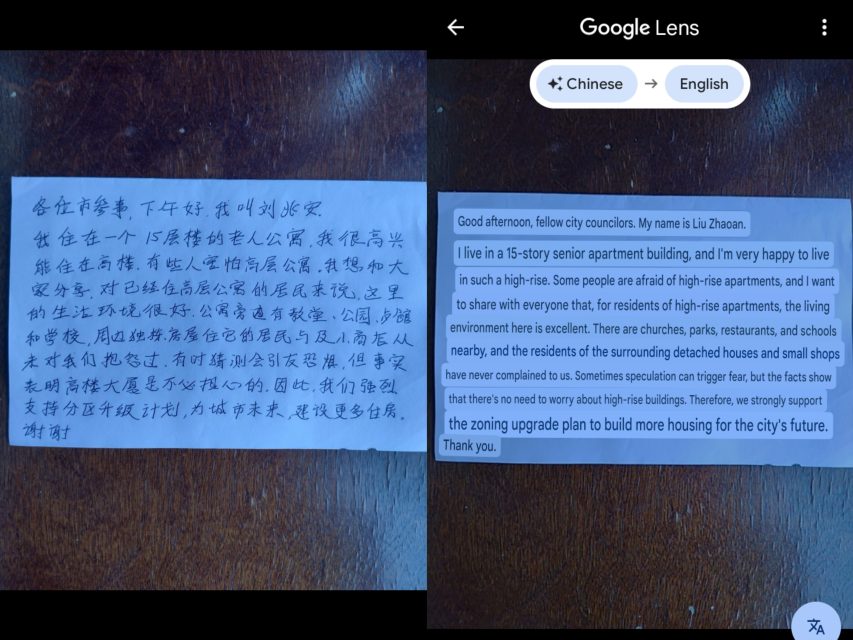 各位市参事,下午好.我叫刘兆安.
我住在一个15层楼的老人公寓,我很高兴
能住在高楼.有些人害怕高层公寓.我想和大
家分享,对已经住高层公寓的居民来说,这里
的生活环境很好.公寓旁边有教堂.公园.餐馆
和学校,周边独栋房屋住宅的居民与及小商店从
未对我们抱怨过.有时猜测会引发恐惧,但事实
表明高楼大厦是不必担心的.因此.我们强烈
支持分区升级计划,为城市未来,建设更多住房.
谢谢
Google Lens
Chinese → English
Good afternoon, fellow city councilors. My name is Liu Zhaoan.
I live in a 15-story senior apartment building, and I'm very happy to live
in such a high-rise. Some people are afraid of high-rise apartments, and I want
to share with everyone that, for residents of high-rise apartments, the living
environment here is excellent. There are churches, parks, restaurants, and schools
nearby, and the residents of the surrounding detached houses and small shops
have never complained to us. Sometimes speculation can trigger fear, but the facts show
that there's no need to worry about high-rise buildings. Therefore, we strongly support
the zoning upgrade plan to build more housing for the city's future.
Thank you.